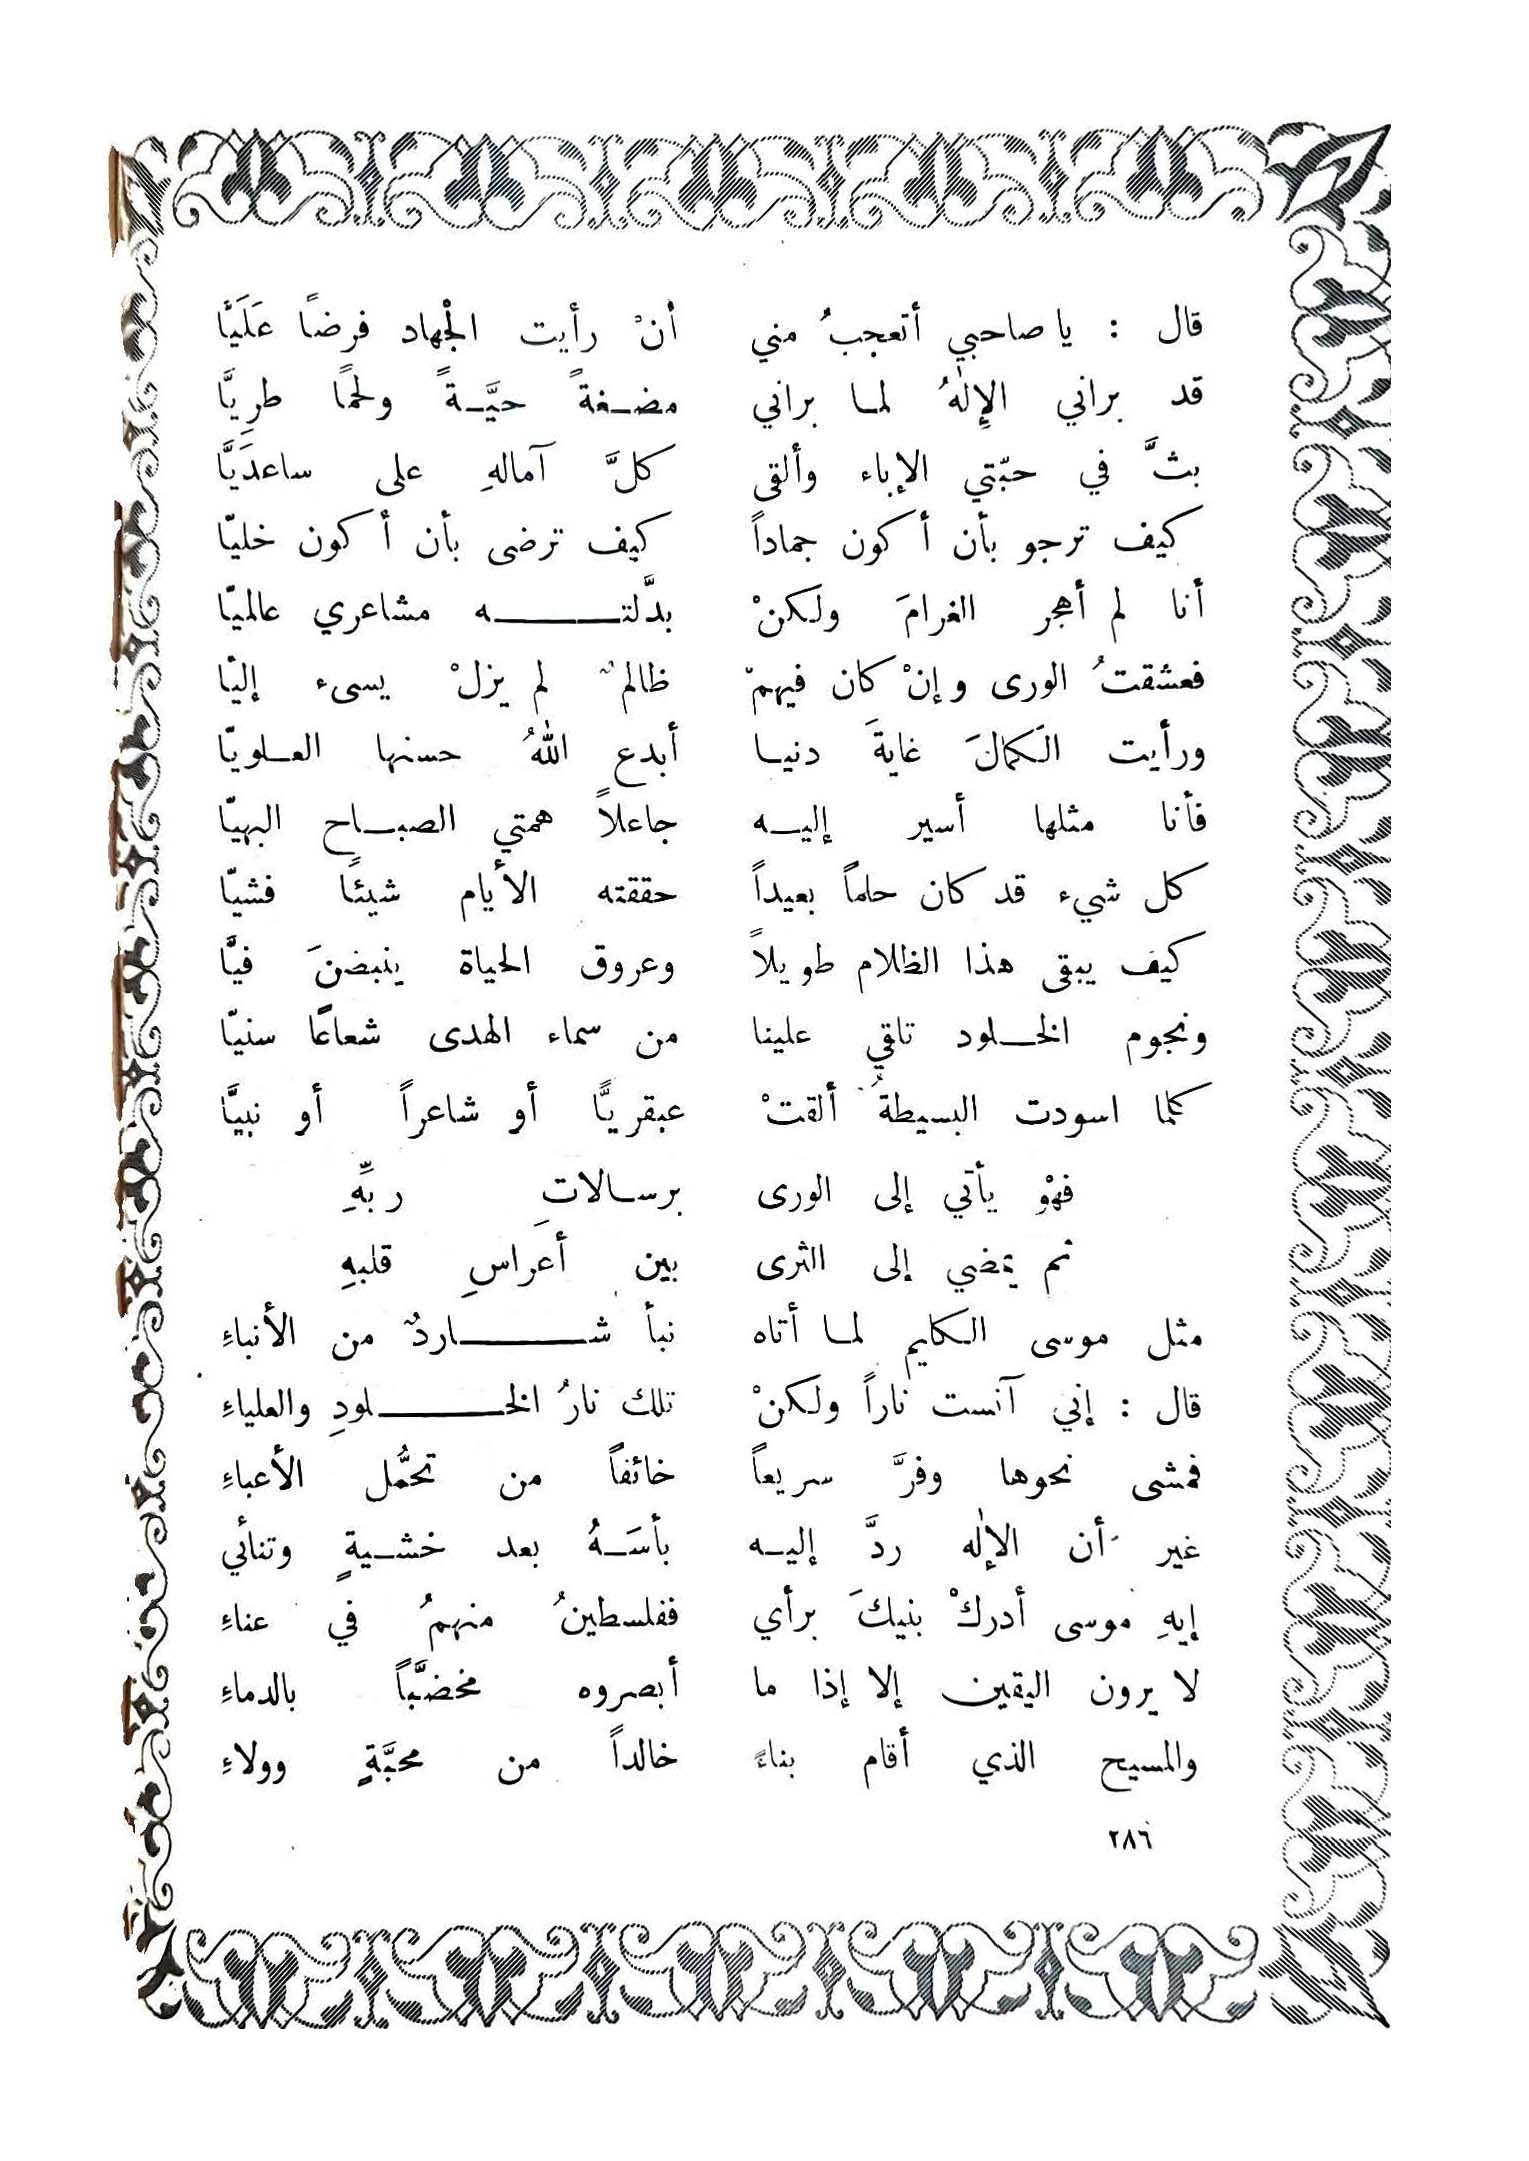 قال : يا صاحبي أتعجبُ مني أنْ رأيت الجْهاد فرضاً عَلَيَّا
قد براني الإِلٰهُ لمـا براني مضـغةً حيَّـةً ولحمًا طرِيَّا
بثَّ في حبّتي الإباء وألقى كلَّ آمالهِ على ساعدَيَّا
كيف ترجو بأن أكون جماداً كيف ترضى بأن أكون خليّا
أنا لم أهجر الغرامَ ولكنْ بدَّلتـــه مشاعري عالميّا
فعشقتُ الورى وإنْ كان فيهمْ ظالمٌ لم يزلْ يسىء إليّا
ورأيت الكمالَ غايةَ دنيـا أبدع اللهُ حسنها العـلويّا
فأنا مثلها أسير إليـه جاعلاً همتي الصبـاح البهيّا
كل شيء قد كان حلماً بعيداً حققته الأيام شيئًا فشيّا
كيف يبقى هذا الظلام طويلاً وعروق الحياة ينبضنَ فيَّا
ونجوم الخـلود تلقي علينا من سماء الهدى شعاعًا سنيّا
كلما اسودت البسيطةُ ألقتْ عبقريًّا أو شاعراً أو نبيَّا
فهْو يأتي إلى الورى برسـالاتِ ربِّهِ
ثم يمضي إلى الثرى بين أعراسِ قلبهِ
مثل موسى الكليم لمـا أتاه نبأ شـــاردٌ من الأنباءِ
قال : إني آنست ناراً ولكنْ تلك نارُ الخـــلودِ والعلياءِ
فمشى نحوها وفرَّ سريعاً خائفاً من تحمُّل الأعباءِ
غير أن الإلٰه ردَّ إليـه بأسَـهُ بعد خشـيةٍ وتنائي
إيهِ موسى أدركْ بنيكَ برأي ففلسطينُ منهمُ في عناءِ
لا يرون اليقين إلا إذا ما أبصروه مخضَّباً بالدماءِ
والمسيح الذي أقام بناءً خالداً من محبَّةٍ وولاءِ
٢٨٦